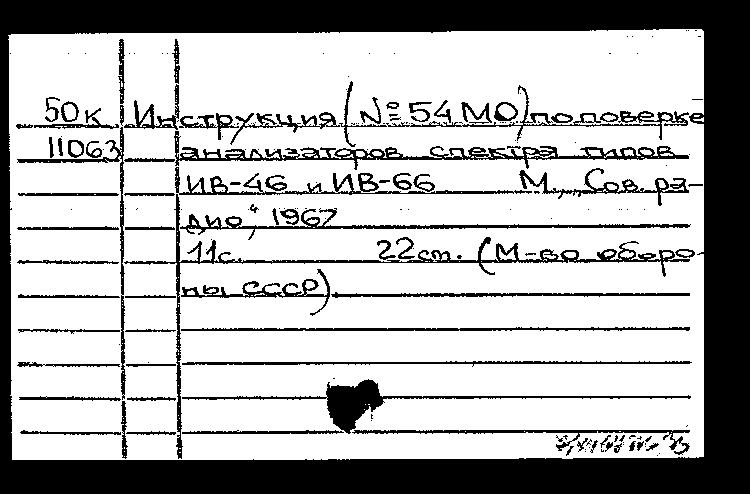 50к Инструкция (№ 54 МО) по поверке
11063 анализаторов спектра типов
ИВ-46 и ИВ-66 М., „Сов. ра-
дио“, 1967
11с. 22см. (М-во оборо-
ны СССР).